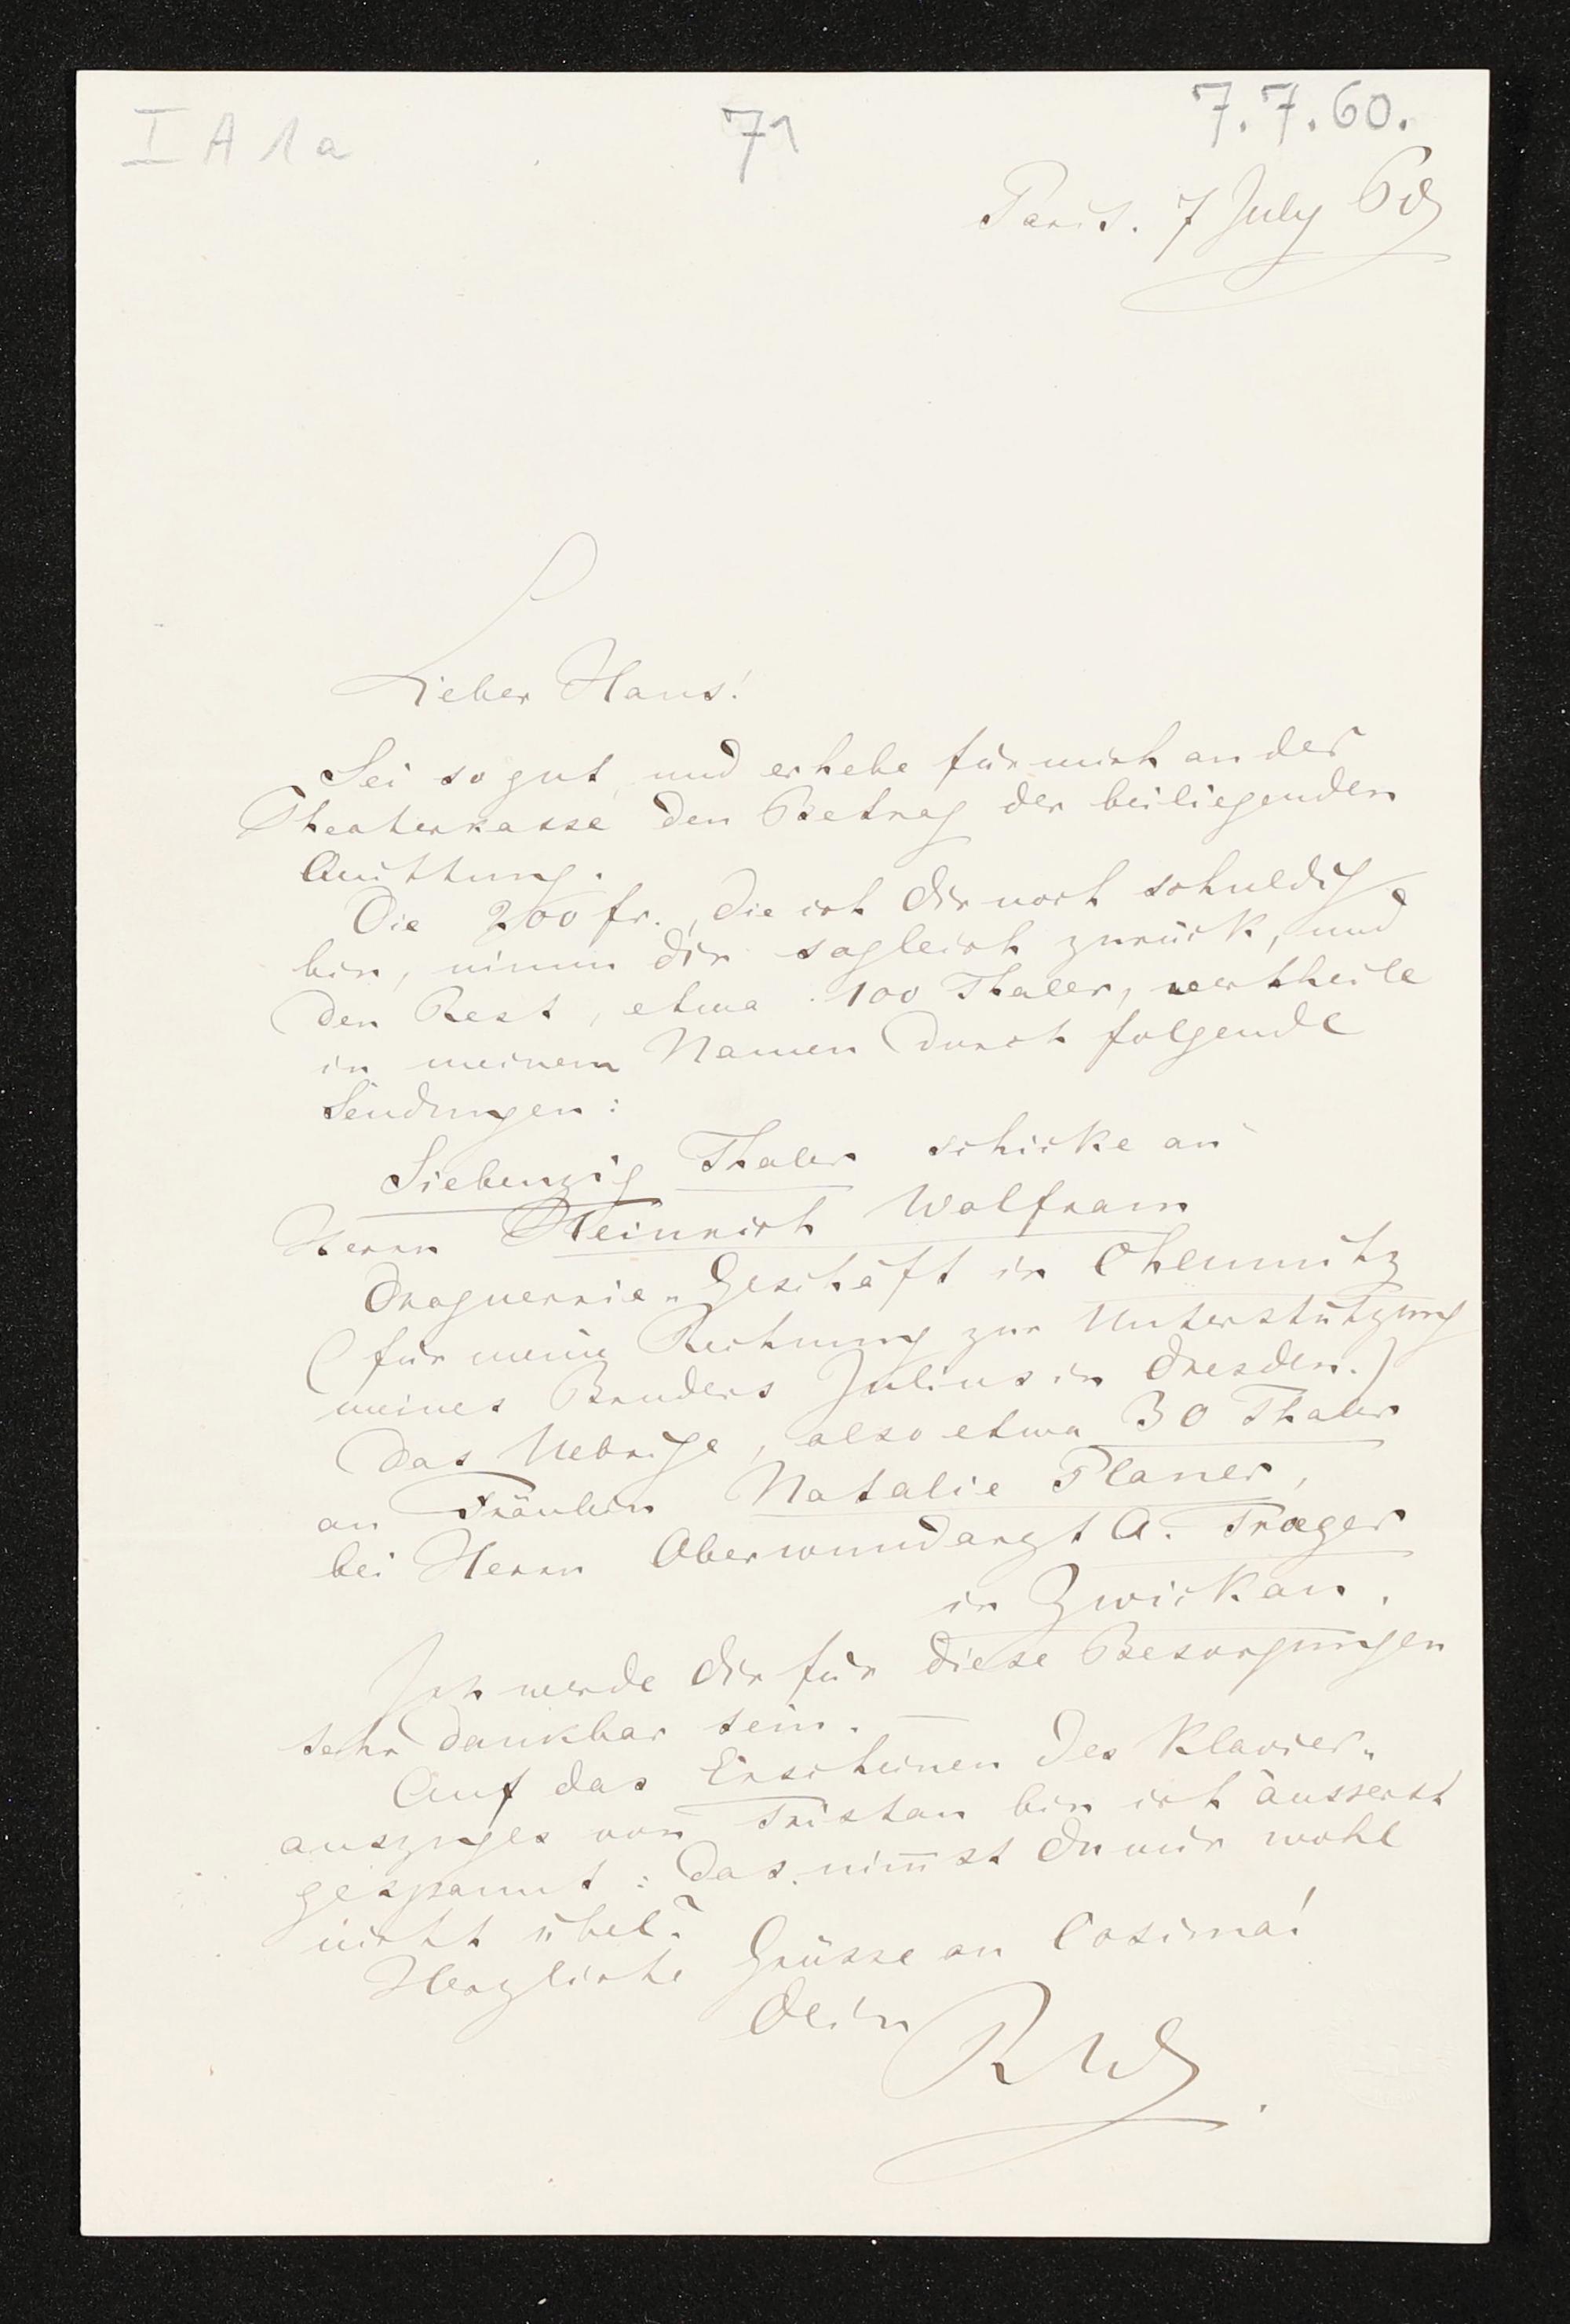 I A 1a
71
7.7.60.
Paris. 7 July 60
Lieber Hans!
Sei so gut, und erhebe für mich an der
Theaterkasse den Betrag der beiliegenden
Quittung.
Die 200 fr., die ich Dir noch schuldig
bin, nimm Dir sogleich zurück, und
den Rest, etwa 100 Thaler, vertheile
in meinem Namen durch folgende
Sendungen:
Siebenzig Thaler schicke an
Herrn Heinrich Wolfram
Droguerrie-Geschäft in Chemnitz
(für meine Rechnung zur Unterstützung
meines Bruders Julius in Dresden.)
Das Uebrige, also etwa 30 Thaler
an Fräulein Natalie Planer,
bei Herrn Oberwundarzt A. Traeger
in Zwickau.
Ich werde Dir für diese Besorgungen
sehr dankbar sein. —
Auf das Erscheinen des Klavier-
auszuges von Tristan bin ich äusserst
gespannt: das nim̅st Du mir wohl
nicht übel?
Herzliche Grüsse an Cosima!
Dein
RW.